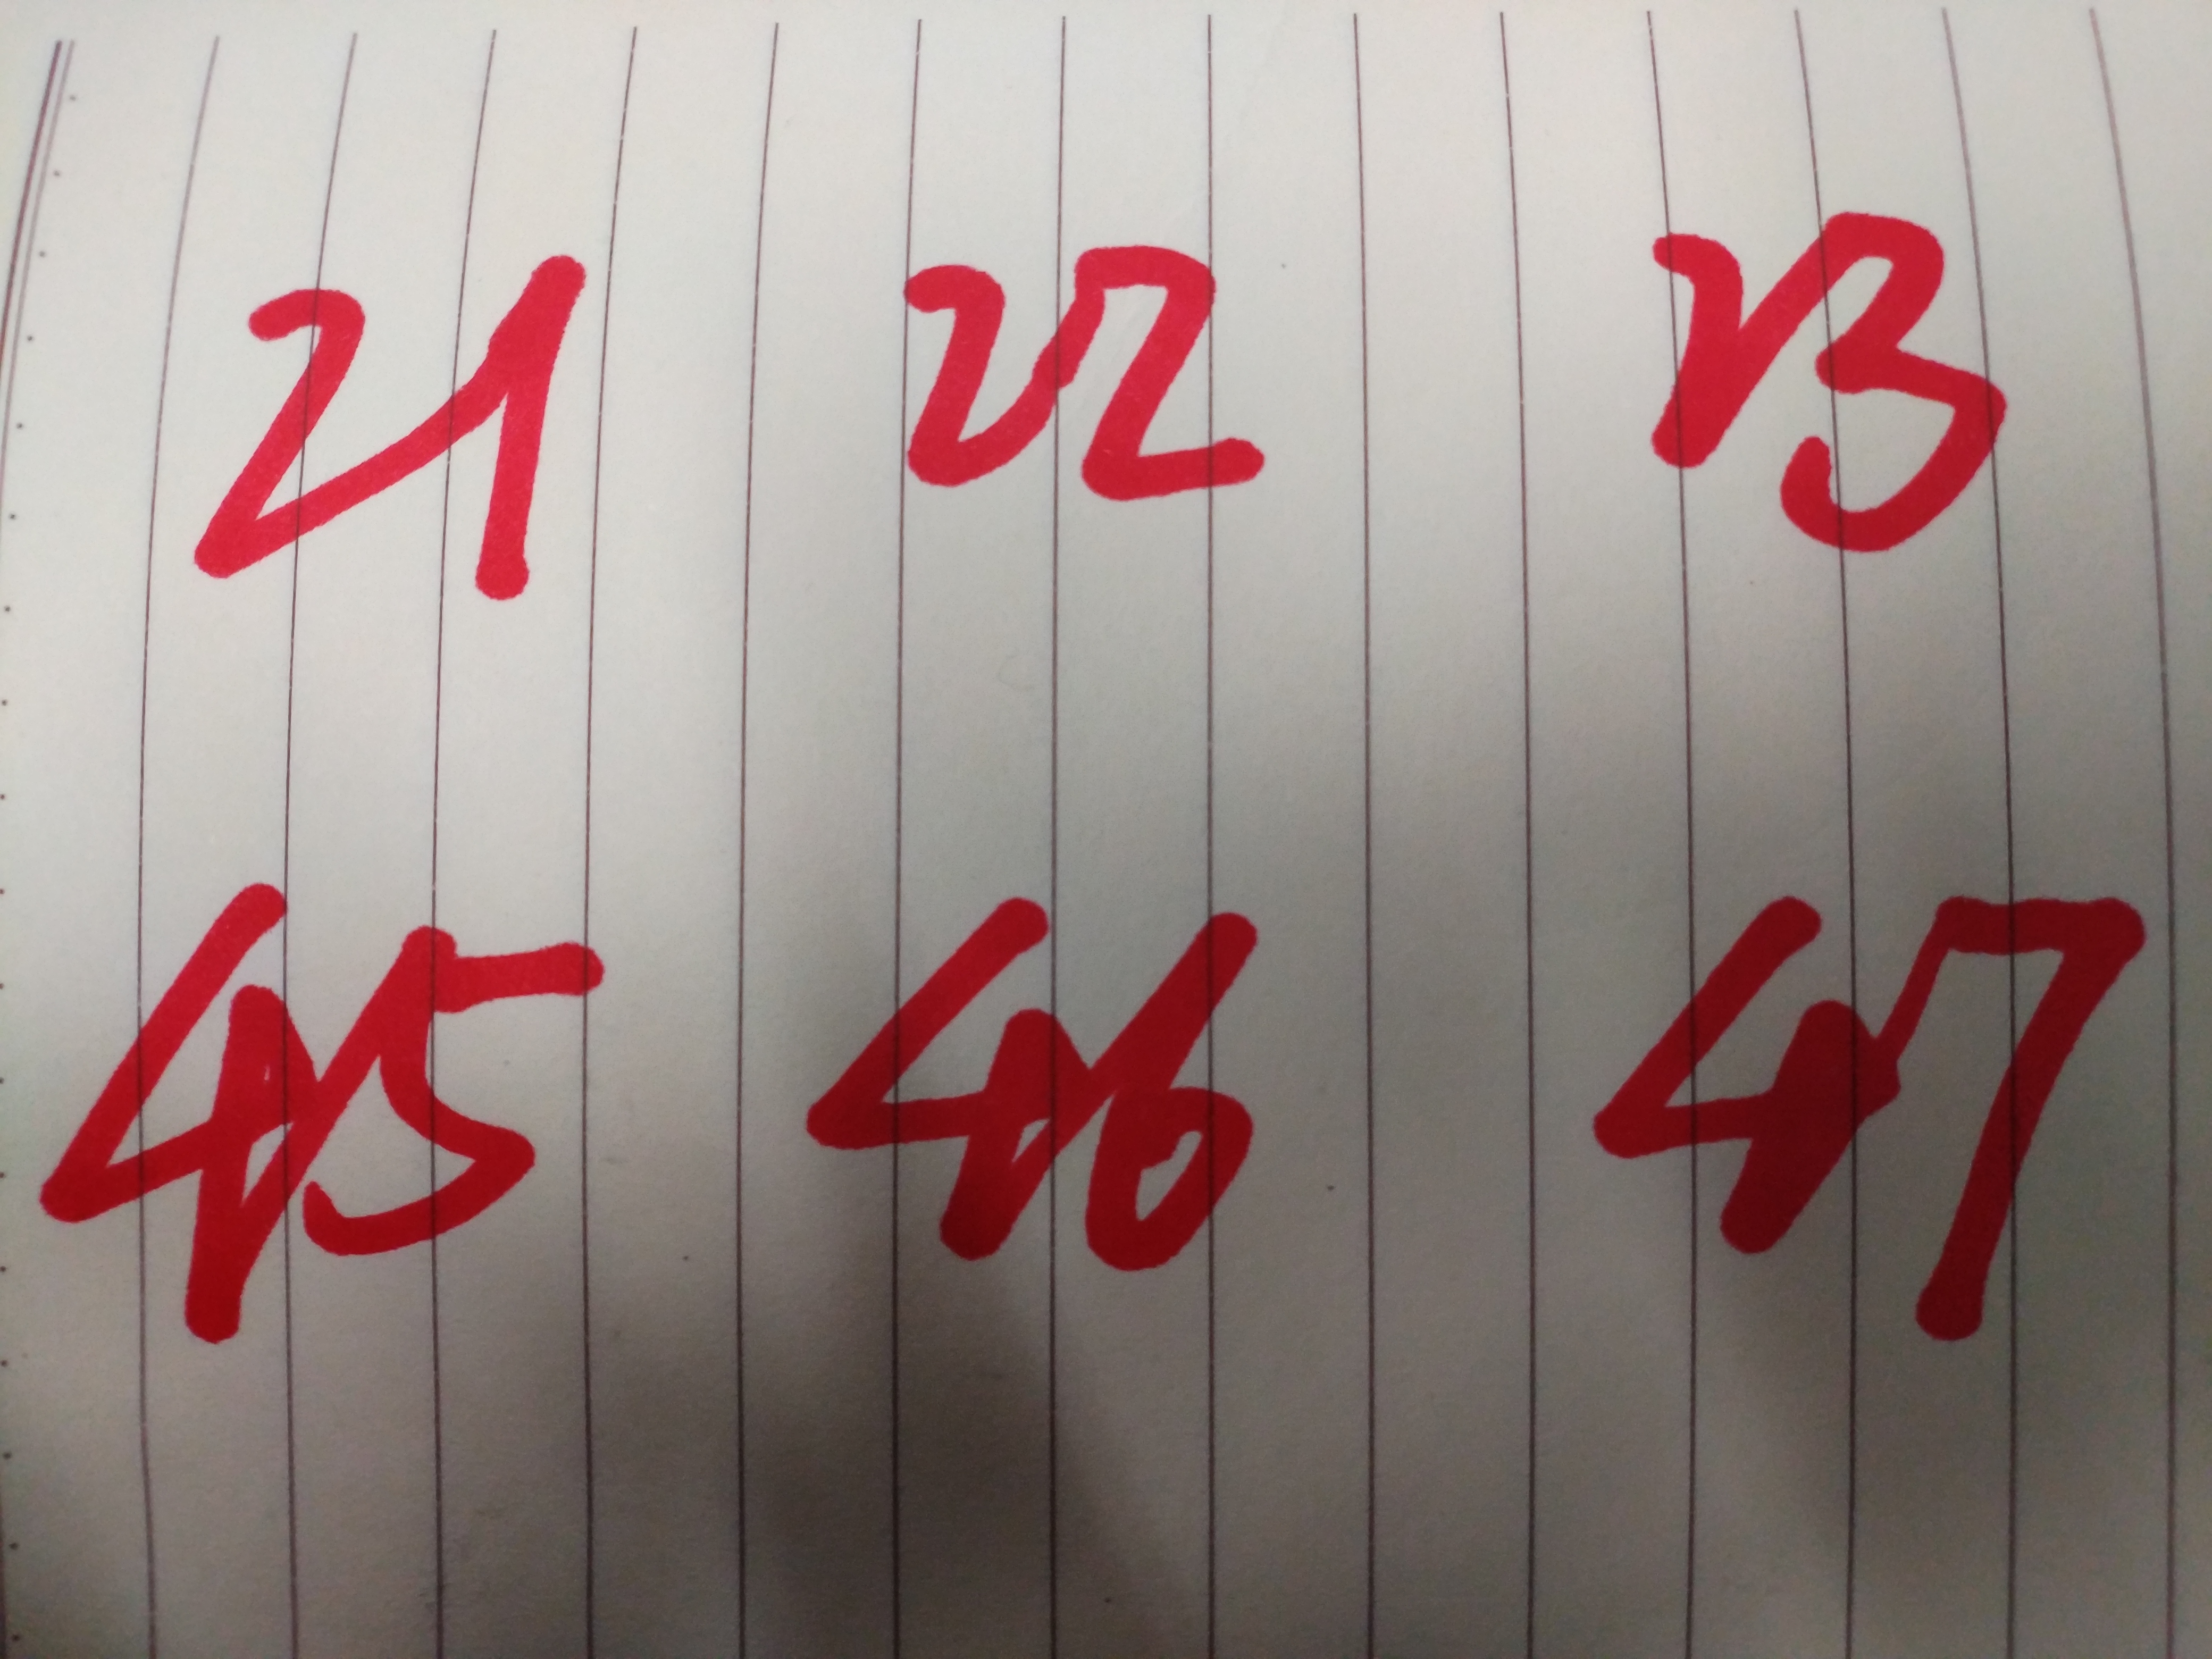 21 22 23
45 46 47